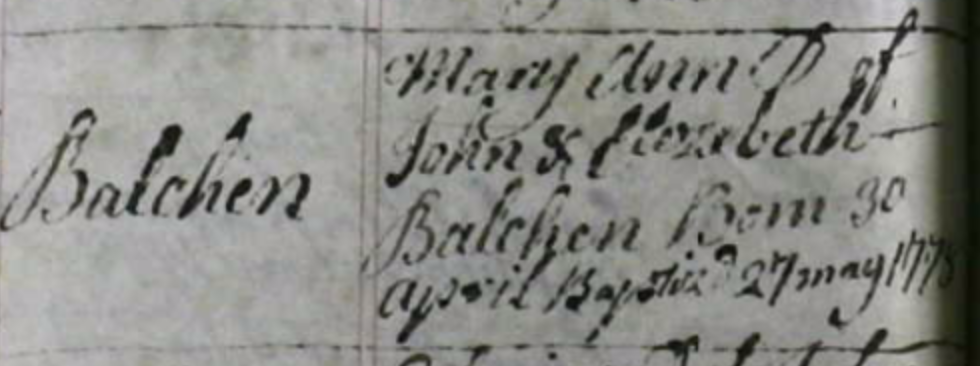 Balchen
Mary Ann D of
John & Elezebeth
Balchen Born 30
april Baptiz'd 27 may 1778